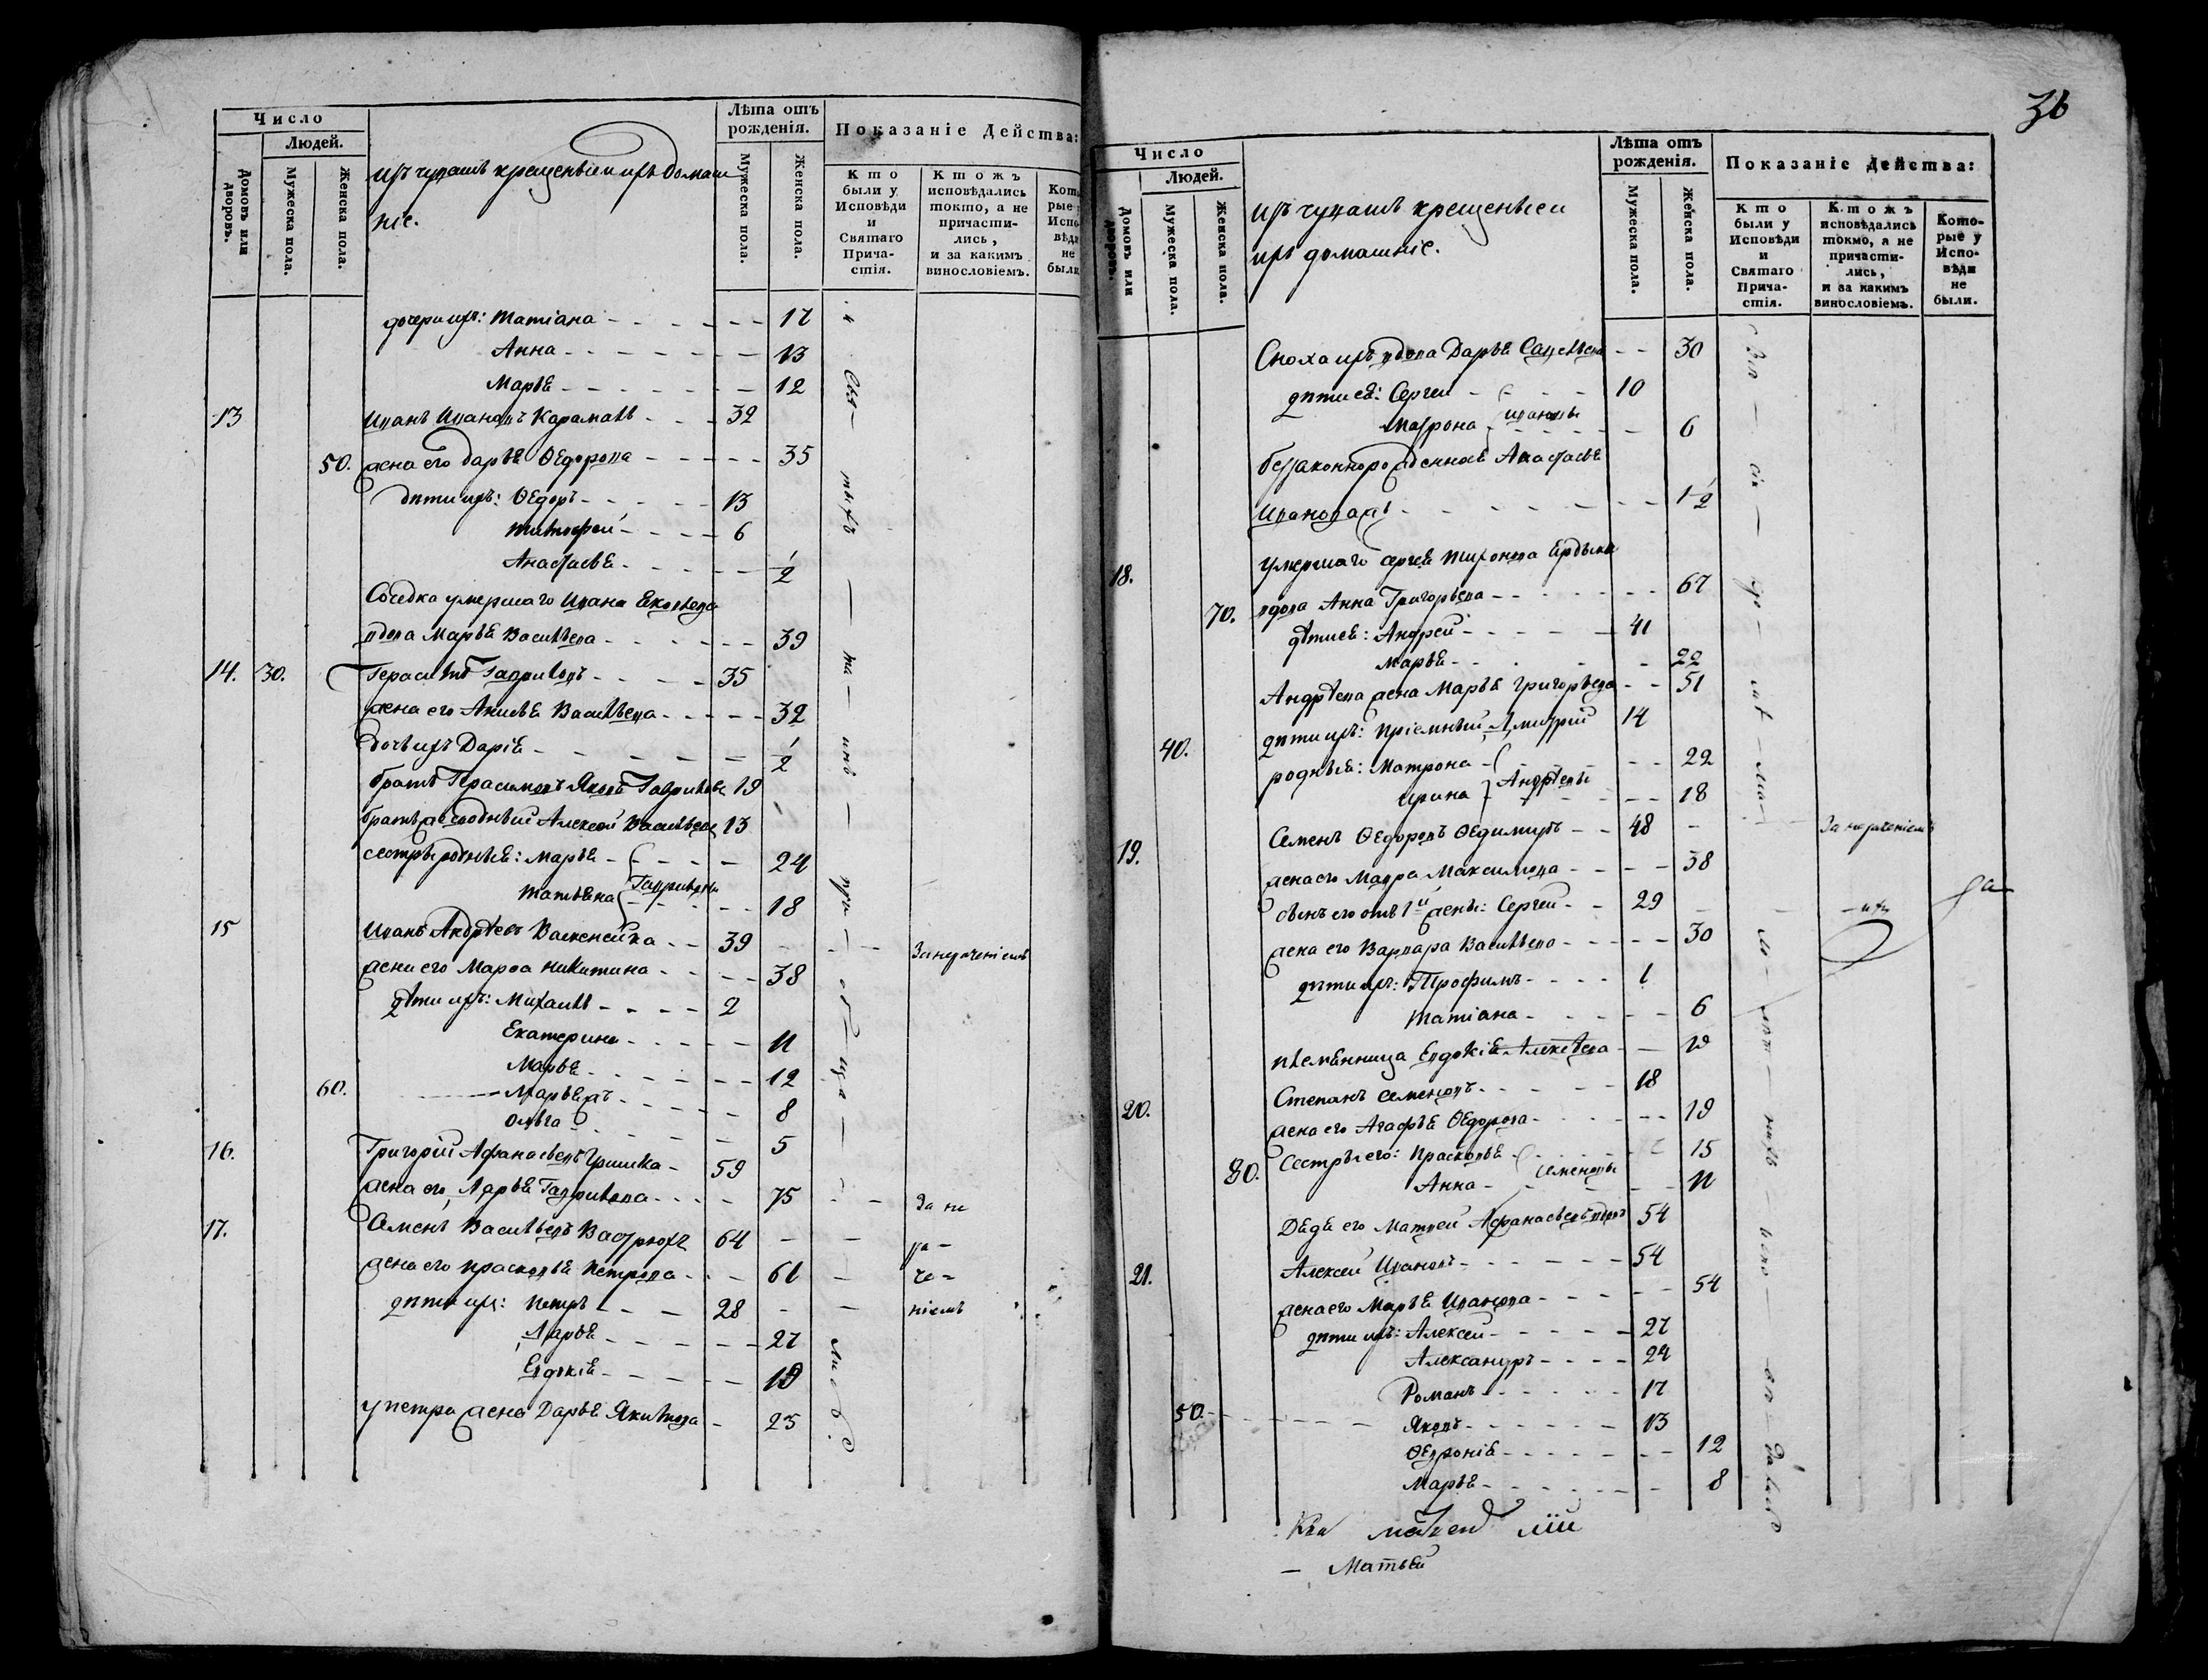 Число
Людей.
Домовъ или дворовъ.
Мужеска пола.
Женска пола.
изъ чувашъ крещеныеи ихъ домаш
ніе.
Лѣта отъ рожденія.
Мужеска пола.
Женска пола.
Показаніе Действа:
Кто были у Исповѣди и Святаго Причастія.
Ктожъ исповѣдались токмо, а не причастились, и за какимъ винословіемъ.
Кото
рые
Испо
вѣди
не
были
дочери ихъ: Татіана - - - 17
Анна - - - 13
Марья - - - 12
13 Иванъ Ивановъ - - - 32
50. жена его Дарья Ѳедорова - - - 35
дѣти ихъ: Ѳедоръ - - - 13
Тимофей - - - 6
Анастасья - - - 1/2
Соседка умершаго Ивана Яковлева
вдова Марья Васильева - - - 39
14. 30. Герасимъ Гавриловъ - - - 35
жена его Анисья Васильева - - - 32
дочь ихъ Дарія - - - 1/2
братъ Герасимовъ Яковъ Гавриловъ 19
братъ Алексей Васильевъ 13
сестры родныя: Марья - - - 24
Татьяна Гавриловы - - - 18
15 Иванъ Андрѣевъ - - 39 - - За нераченіемъ
жена его Марѳа Никитина - - - 38
дѣти ихъ: Михаилъ - - - 2
Екатерина - - - 11
Марья - - - 12
60. Марья жъ - - - 8
Ольга - - - 5
16. Григорій Афанасьевъ Гришка - 59
жена его Дарья Гаврилова - - - 75 - - За не
17. Семенъ Васильевъ 64 - - ра-
жена его Прасковья Петрова - - 61 - че-
дѣти ихъ: Петръ - - - 28 - - ніемъ
Дарья - - - 27
Евдокія - - - 19
у Петра жена Дарья Якимова - 25
36
Число
Людей.
Домовъ или дворовъ.
Мужеска пола.
Женска пола.
изъ чувашъ крещеныеи
ихъ домашніе.
Лѣта отъ рожденія.
Мужеска пола.
Женска пола.
Показаніе Действа:
Кто были у Исповѣди и Святаго Причастія.
Ктожъ исповѣдались токмо, а не причастились, и за какимъ винословіемъ.
Которые у Исповѣди не были.
Сноха ихъ вдова Дарья Савельева - - 30
дѣти ея: Сергей - - - 10
Матрона Ивановы - - - 6
беззаконнорожденная Анастасья
Иванова жъ - - - 1/2
18. умершаго Сергея Тихонова
70. вдова Анна Григорьева - - - 67
дѣти ея: Андрей - - - 41
Марья - - - 22
Андрѣева жена Марья Григорьева - - 51
40. дѣти ихъ: пріемный Дмитрій 14
родныя: Матрона - - - 22
Ирина Андрѣевы - - - 18
19. Семенъ Ѳедоровъ - - 48 - За нераченіемъ
жена его Мавра Максимова - - - 38
сынъ его отъ 1й жены: Сергей - - 29
жена его Варвара Васильева - - - 30
дѣти ихъ: Трофимъ - - - 1
Татіана - - - 6
племянница Евдокія Алексѣева - - 19
20. Степанъ Семеновъ - - - 18
жена его Агафья Ѳедорова - - - 19
сестры его: Прасковья - - - 15
80. Анна Семеновы - - - 11
Дядя его Матвей Афанасьевъ вдовъ 54
21. Алексей Ивановъ - - - 54
жена его Марья Иванова - - - 54
дѣти ихъ: Алексей - - - 27
Александръ - - - 24
Романъ - - - 17
50. Яковъ - - - 13
Ѳевронія - - - 12
Марья - - - 8
- Матвѣй